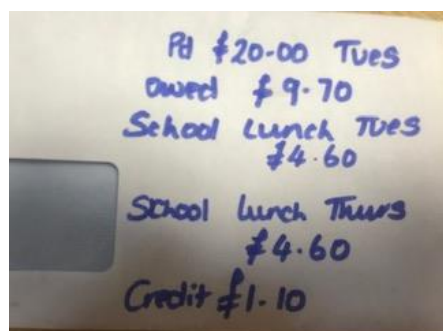 Pd £20-00 Tues
owed £9-70
School Lunch Tues
£4.60
School Lunch Thurs
£4.60
Credit £1-10